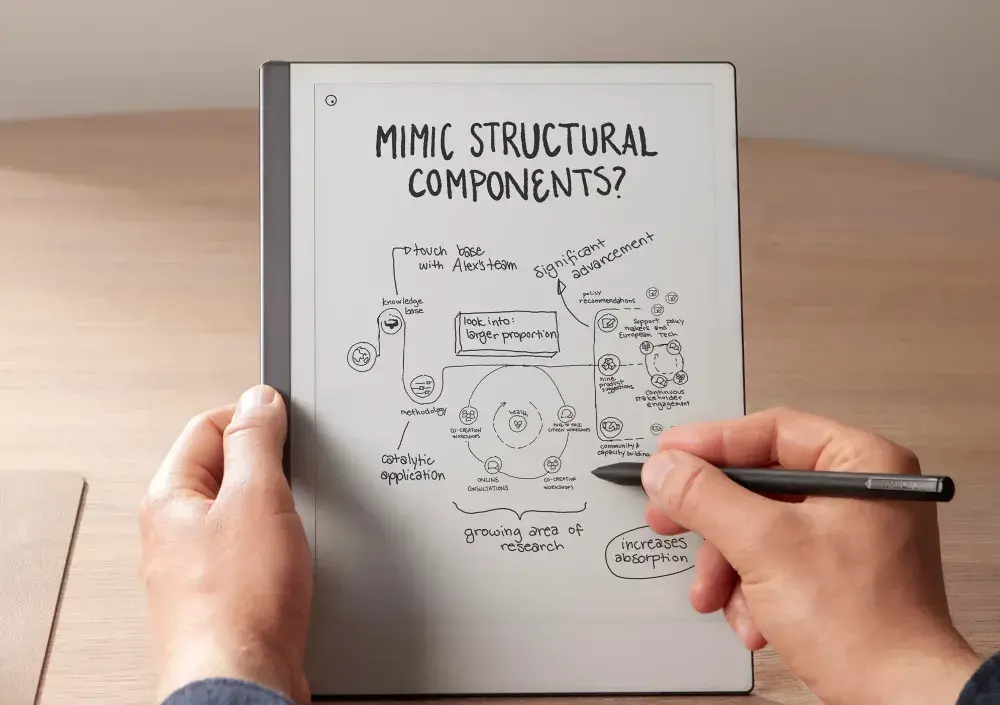 MIMIC STRUCTURAL
COMPONENTS?
touch base
with Alex's team
significant
advancement
knowledge
base
policy
recommendations
look into:
larger proportion
support policy
makers and
European Tech
nine
product
suggestions
continuous
stakeholder
engagement
methodology
health
CO-CREATION
WORKSHOPS
FACE-TO-FACE
CITIZEN WORKSHOPS
community &
capacity building
catalytic
application
ONLINE
CONSULTATIONS
CO-CREATION
WORKSHOPS
growing area of
research
increases
absorption